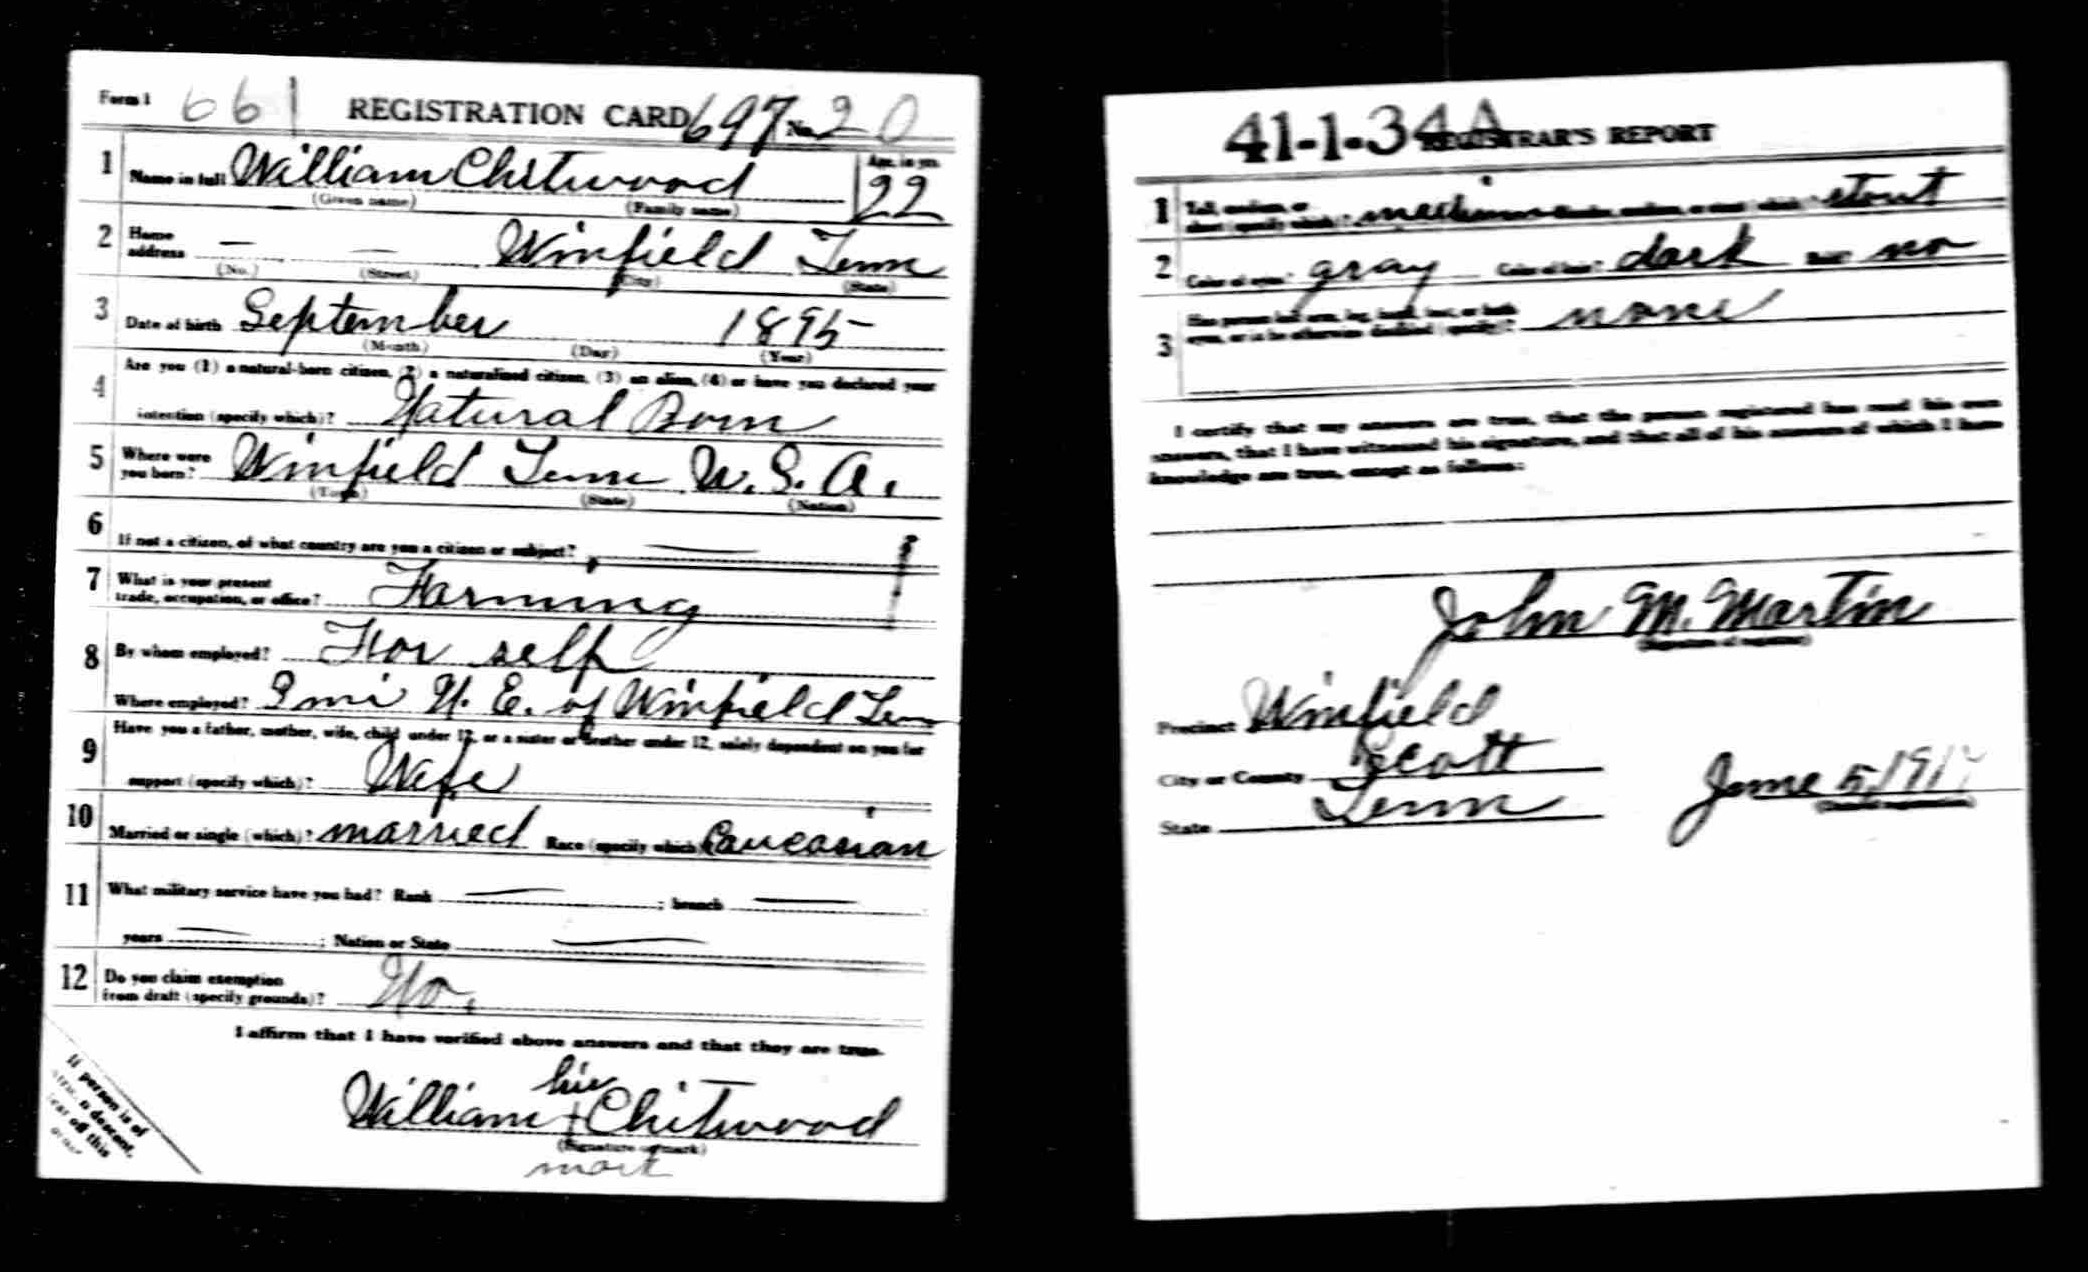 Form 1 661 REGISTRATION CARD 697 No. 20
1 Name in full William Chitwood Age, in yrs. 22
(Given name) (Family name)
2 Home address — — Winfield Tenn
(No.) (Street) (City) (State)
3 Date of birth September 1895
(Month) (Day) (Year)
4 Are you (1) a natural-born citizen, (2) a naturalized citizen, (3) an alien, (4) or have you declared your
intention (specify which)? Natural Born
5 Where were you born? Winfield Tenn U. S. A.
(Town) (State) (Nation)
6 If not a citizen, of what country are you a citizen or subject? —
7 What is your present trade, occupation, or office? Farming
8 By whom employed? For self
Where employed? 2 mi N. E. of Winfield Tenn
9 Have you a father, mother, wife, child under 12, or a sister or brother under 12, solely dependent on you for
support (specify which)? Wife
10 Married or single (which)? married Race (specify which)? Caucasian
11 What military service have you had? Rank — ; branch —
years — ; Nation or State —
12 Do you claim exemption from draft (specify grounds)? No.
I affirm that I have verified above answers and that they are true.
his
William + Chitwood
(Signature or mark)
mark
If person is of
descent,
off this
41-1-34 A REGISTRAR'S REPORT
1 Tall, medium, or short (specify which)? medium Slender, medium, or stout (which)? stout
2 Color of eyes? gray Color of hair? dark Bald? no
3 Has person lost arm, leg, hand, foot, or both eyes, or is he otherwise disabled (specify)? none
I certify that my answers are true, that the person registered has read his own
answers, that I have witnessed his signature, and that all of his answers of which I have
knowledge are true, except as follows:
John M. Martin
(Signature of registrar)
Precinct Winfield
City or County Scott
State Tenn
June 5, 1917
(Date of registration)